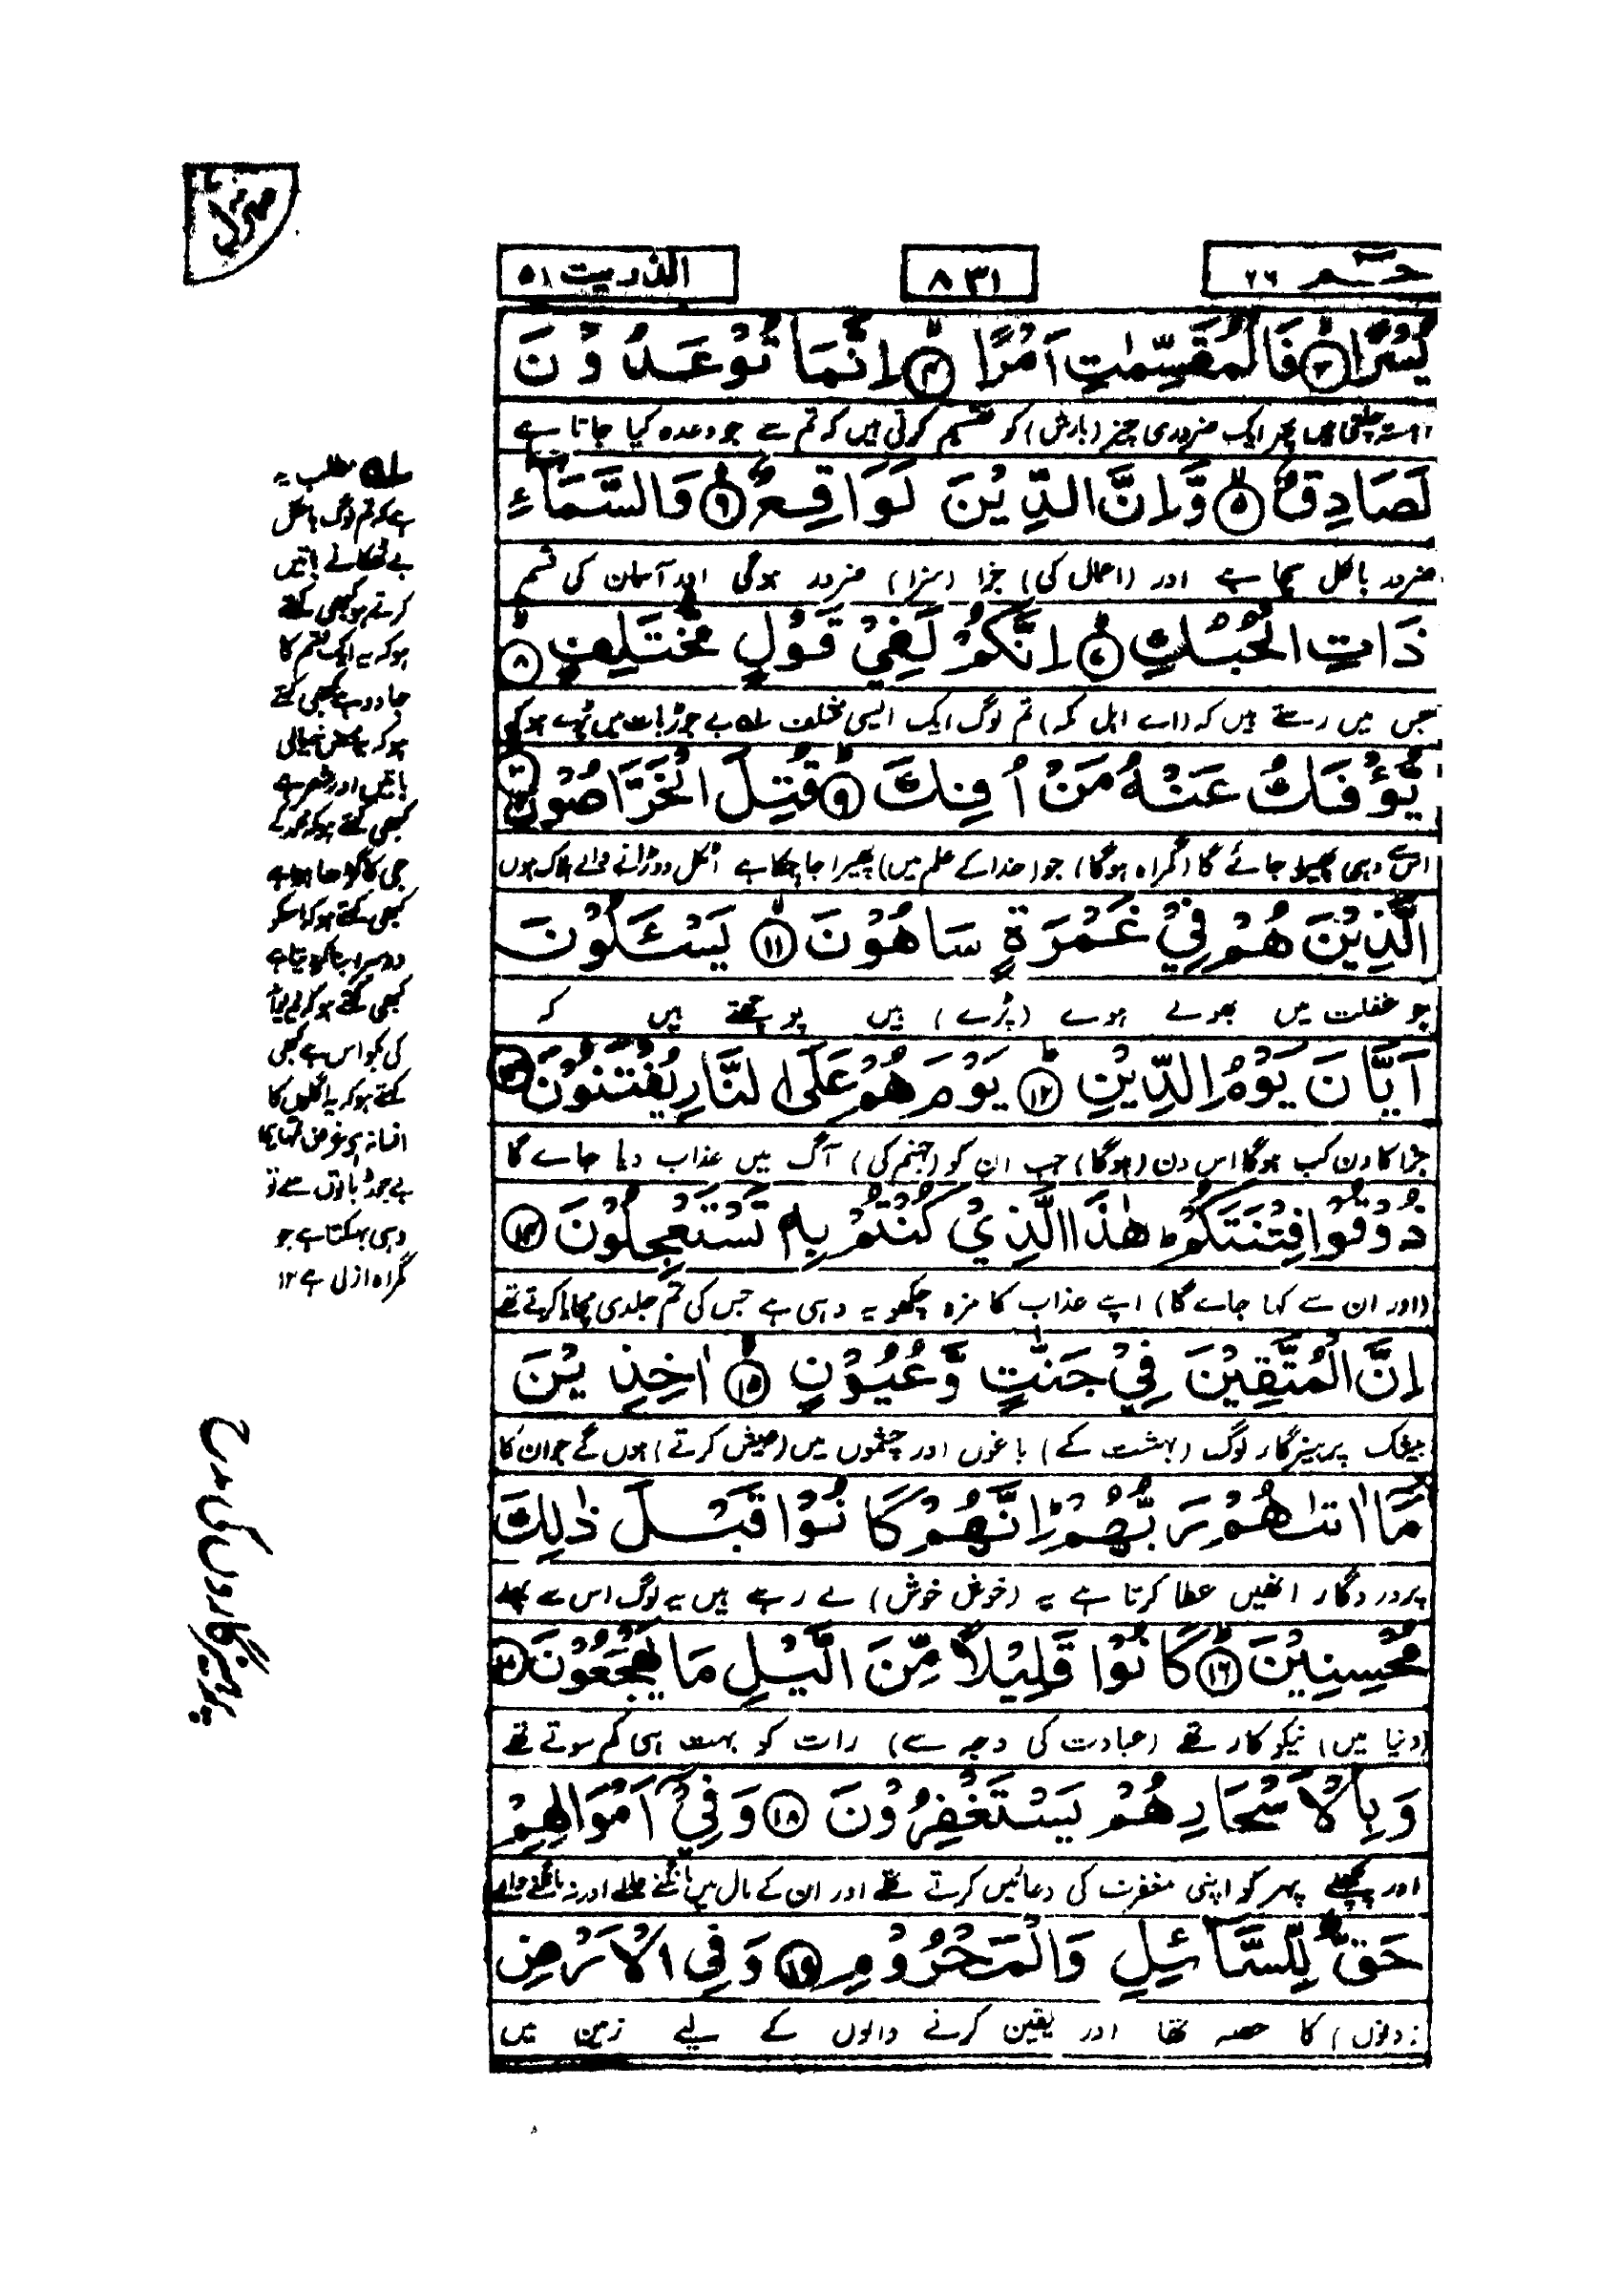 منزل
حٰمٓ ٢٦
٨٣١
الذٰريٰت ٥١
يُسْرًا ۝٣ فَالْمُقَسِّمٰتِ اَمْرًا ۝٤ اِنَّمَا تُوْعَدُوْنَ
آہستہ چلتی ہیں پھر ایک ضروری چیز (بارش) کو تقسیم کرتی ہیں کہ تم سے جو وعدہ کیا جاتا ہے
لَصَادِقٌ ۝٥ وَّاِنَّ الدِّيْنَ لَوَاقِعٌ ۝٦ وَالسَّمَآءِ
ضرور بالکل سچا ہے اور (اعمال کی) جزا (سزا) ضرور ہوگی اور آسمان کی قسم
ذَاتِ الْحُبُكِ ۝٧ اِنَّكُمْ لَفِيْ قَوْلٍ مُّخْتَلِفٍ ۝٨
جس میں رستے ہیں کہ (اے اہل مکہ) تم لوگ ایک ایسی مختلف لہ بے جوڑ بات میں پڑے ہو کہ
يُّؤْفَكُ عَنْهُ مَنْ اُفِكَ ۝٩ قُتِلَ الْخَرَّاصُوْنَ ۝١٠
اس سے وہی پھیرا جائے گا (گمراہ ہوگا) جو (خدا کے علم میں) پھیرا جا چکا ہے اٹکل دوڑانے والے ہلاک ہوں
الَّذِيْنَ هُمْ فِيْ غَمْرَةٍ سَاهُوْنَ ۝١١ يَسْـَٔلُوْنَ
جو غفلت میں بھولے ہوے (پڑے) ہیں پوچھتے ہیں کہ
اَيَّانَ يَوْمُ الدِّيْنِ ۝١٢ يَوْمَ هُمْ عَلَى النَّارِ يُفْتَنُوْنَ ۝١٣
جزا کا دن کب ہوگا اس دن (ہوگا) جب ان کو (جہنم کی) آگ میں عذاب دیا جاے گا
ذُوْقُوْا فِتْنَتَكُمْ ؕ هٰذَا الَّذِيْ كُنْتُمْ بِهٖ تَسْتَعْجِلُوْنَ ۝١٤
(اور ان سے کہا جاے گا) اپنے عذاب کا مزہ چکھو یہ وہی ہے جس کی تم جلدی مچایا کرتے تھے
اِنَّ الْمُتَّقِيْنَ فِيْ جَنّٰتٍ وَّعُيُوْنٍ ۝١٥ اٰخِذِيْنَ
بیشک پرہیزگار لوگ (بہشت کے) باغوں اور چشموں میں (عیش کرتے) ہوں گے جو ان کا
مَآ اٰتٰىهُمْ رَبُّهُمْ ؕ اِنَّهُمْ كَانُوْا قَبْلَ ذٰلِكَ
پروردگار انھیں عطا کرتا ہے یہ (خوش خوش) لے رہے ہیں یہ لوگ اس سے پہلے
مُحْسِنِيْنَ ۝١٦ كَانُوْا قَلِيْلًا مِّنَ الَّيْلِ مَا يَهْجَعُوْنَ ۝١٧
(دنیا میں) نیکوکار تھے (عبادت کی وجہ سے) رات کو بہت ہی کم سوتے تھے
وَبِالْاَسْحَارِ هُمْ يَسْتَغْفِرُوْنَ ۝١٨ وَفِيْٓ اَمْوَالِهِمْ
اور پچھلے پہر کو اپنی مغفرت کی دعائیں کرتے تھے اور ان کے مال میں مانگنے والے اور نہ مانگنے والے
حَقٌّ لِّلسَّآئِلِ وَالْمَحْرُوْمِ ۝١٩ وَفِي الْاَرْضِ
(دونوں) کا حصہ تھا اور یقین کرنے والوں کے لیے زمین میں
لہ مطلب یہ
ہے کہ تم لوگ بالکل
بے ٹھکانے باتیں
کرتے ہو کبھی کہتے
ہو کہ یہ ایک قسم کا
جادو ہے کبھی کہتے
ہو کہ یہ محض خیالی
باتیں اور شعر ہے
کبھی کہتے ہو کہ محمد کے
جی کا گڑھا ہوا ہے
کبھی کہتے ہو کہ اسکو
دوسرا سکھا دیتا ہے
کبھی کہتے ہو کہ
کی بکواس ہے کبھی
کہتے ہو کہ یہ اگلوں کا
افسانہ ہے غرض تمہاری
بے جوڑ باتوں سے تو
وہی بہکتا ہے جو
گمراہ ازلی ہے ١٢
پرہیزگاروں کی مدح